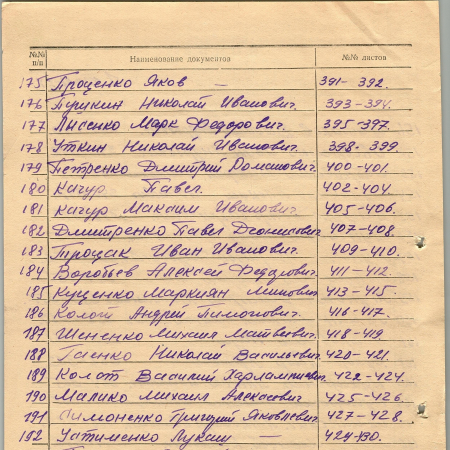 №№ п/п Наименование документов №№ листов
175 Проценко Яков — 391-392.
176 Пушкин Николай Иванович. 393-394.
177 Лысенко Марк Федорович. 395-397.
178 Уткин Николай Иванович. 398-399.
179 Петренко Дмитрий Романович. 400-401.
180 Качур Павел. 402-404.
181 Качур Максим Иванович. 405-406.
182 Дмитренко Павел Денисович. 407-408.
183 Троцак Иван Иванович. 409-410.
184 Воробьев Алексей Федорович. 411-412.
185 Куценко Маркиян 413-415.
186 Колот Андрей 416-417.
187 Шененко Михаил Матвеевич. 418-419.
188 Гаенко Николай Васильевич. 420-421.
189 Колот Василий Харлампиевич. 422-424.
190 Малико Михаил 425-426.
191 Симоненко Григорий Яковлевич. 427-428.
192 Устименко Лукаш — 429-430.